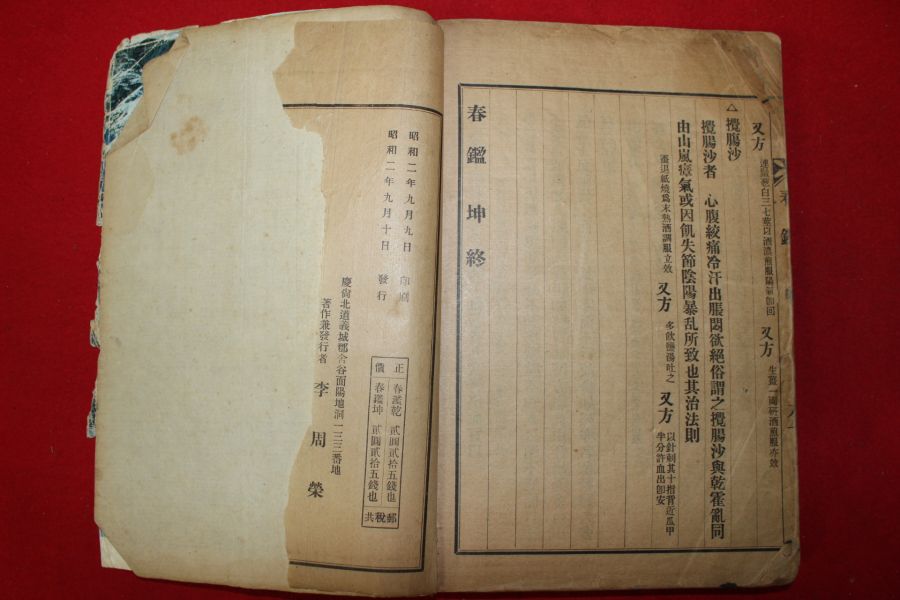 又方 連根葱白三七莖以酒濃煎服陽氣卽回 又方 生薑一兩研酒煎服亦效
△攪腸沙
攪腸沙者 心腹絞痛冷汗出脹悶欲絕俗謂之攪腸沙與乾霍亂同
由山嵐瘴氣或因飢失節陰陽暴乱所致也其治法則
蚕退紙燒爲末熟酒調服立效 又方 多飮鹽湯吐之 又方 以針刺其十指背近瓜甲
半分許血出卽安
春鑑坤終
春鑑
昭和二年九月九日 印刷
昭和二年九月十日 發行
正價 春鑑乾 貳圓貳拾五錢也
春鑑坤 貳圓貳拾五錢也
郵稅共
慶尙北道義城郡舍谷面陽地洞一三三番地
著作兼發行者 李周榮